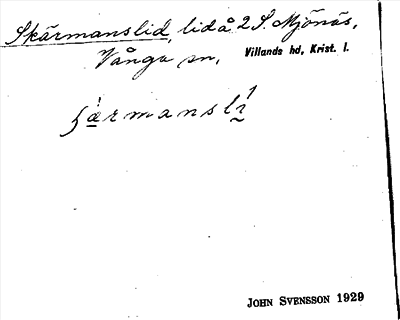 Skärmanslid, lid å 2 S. Mjönäs,
Vånga sn, Villands hd, Krist. l.
John Svensson 1929